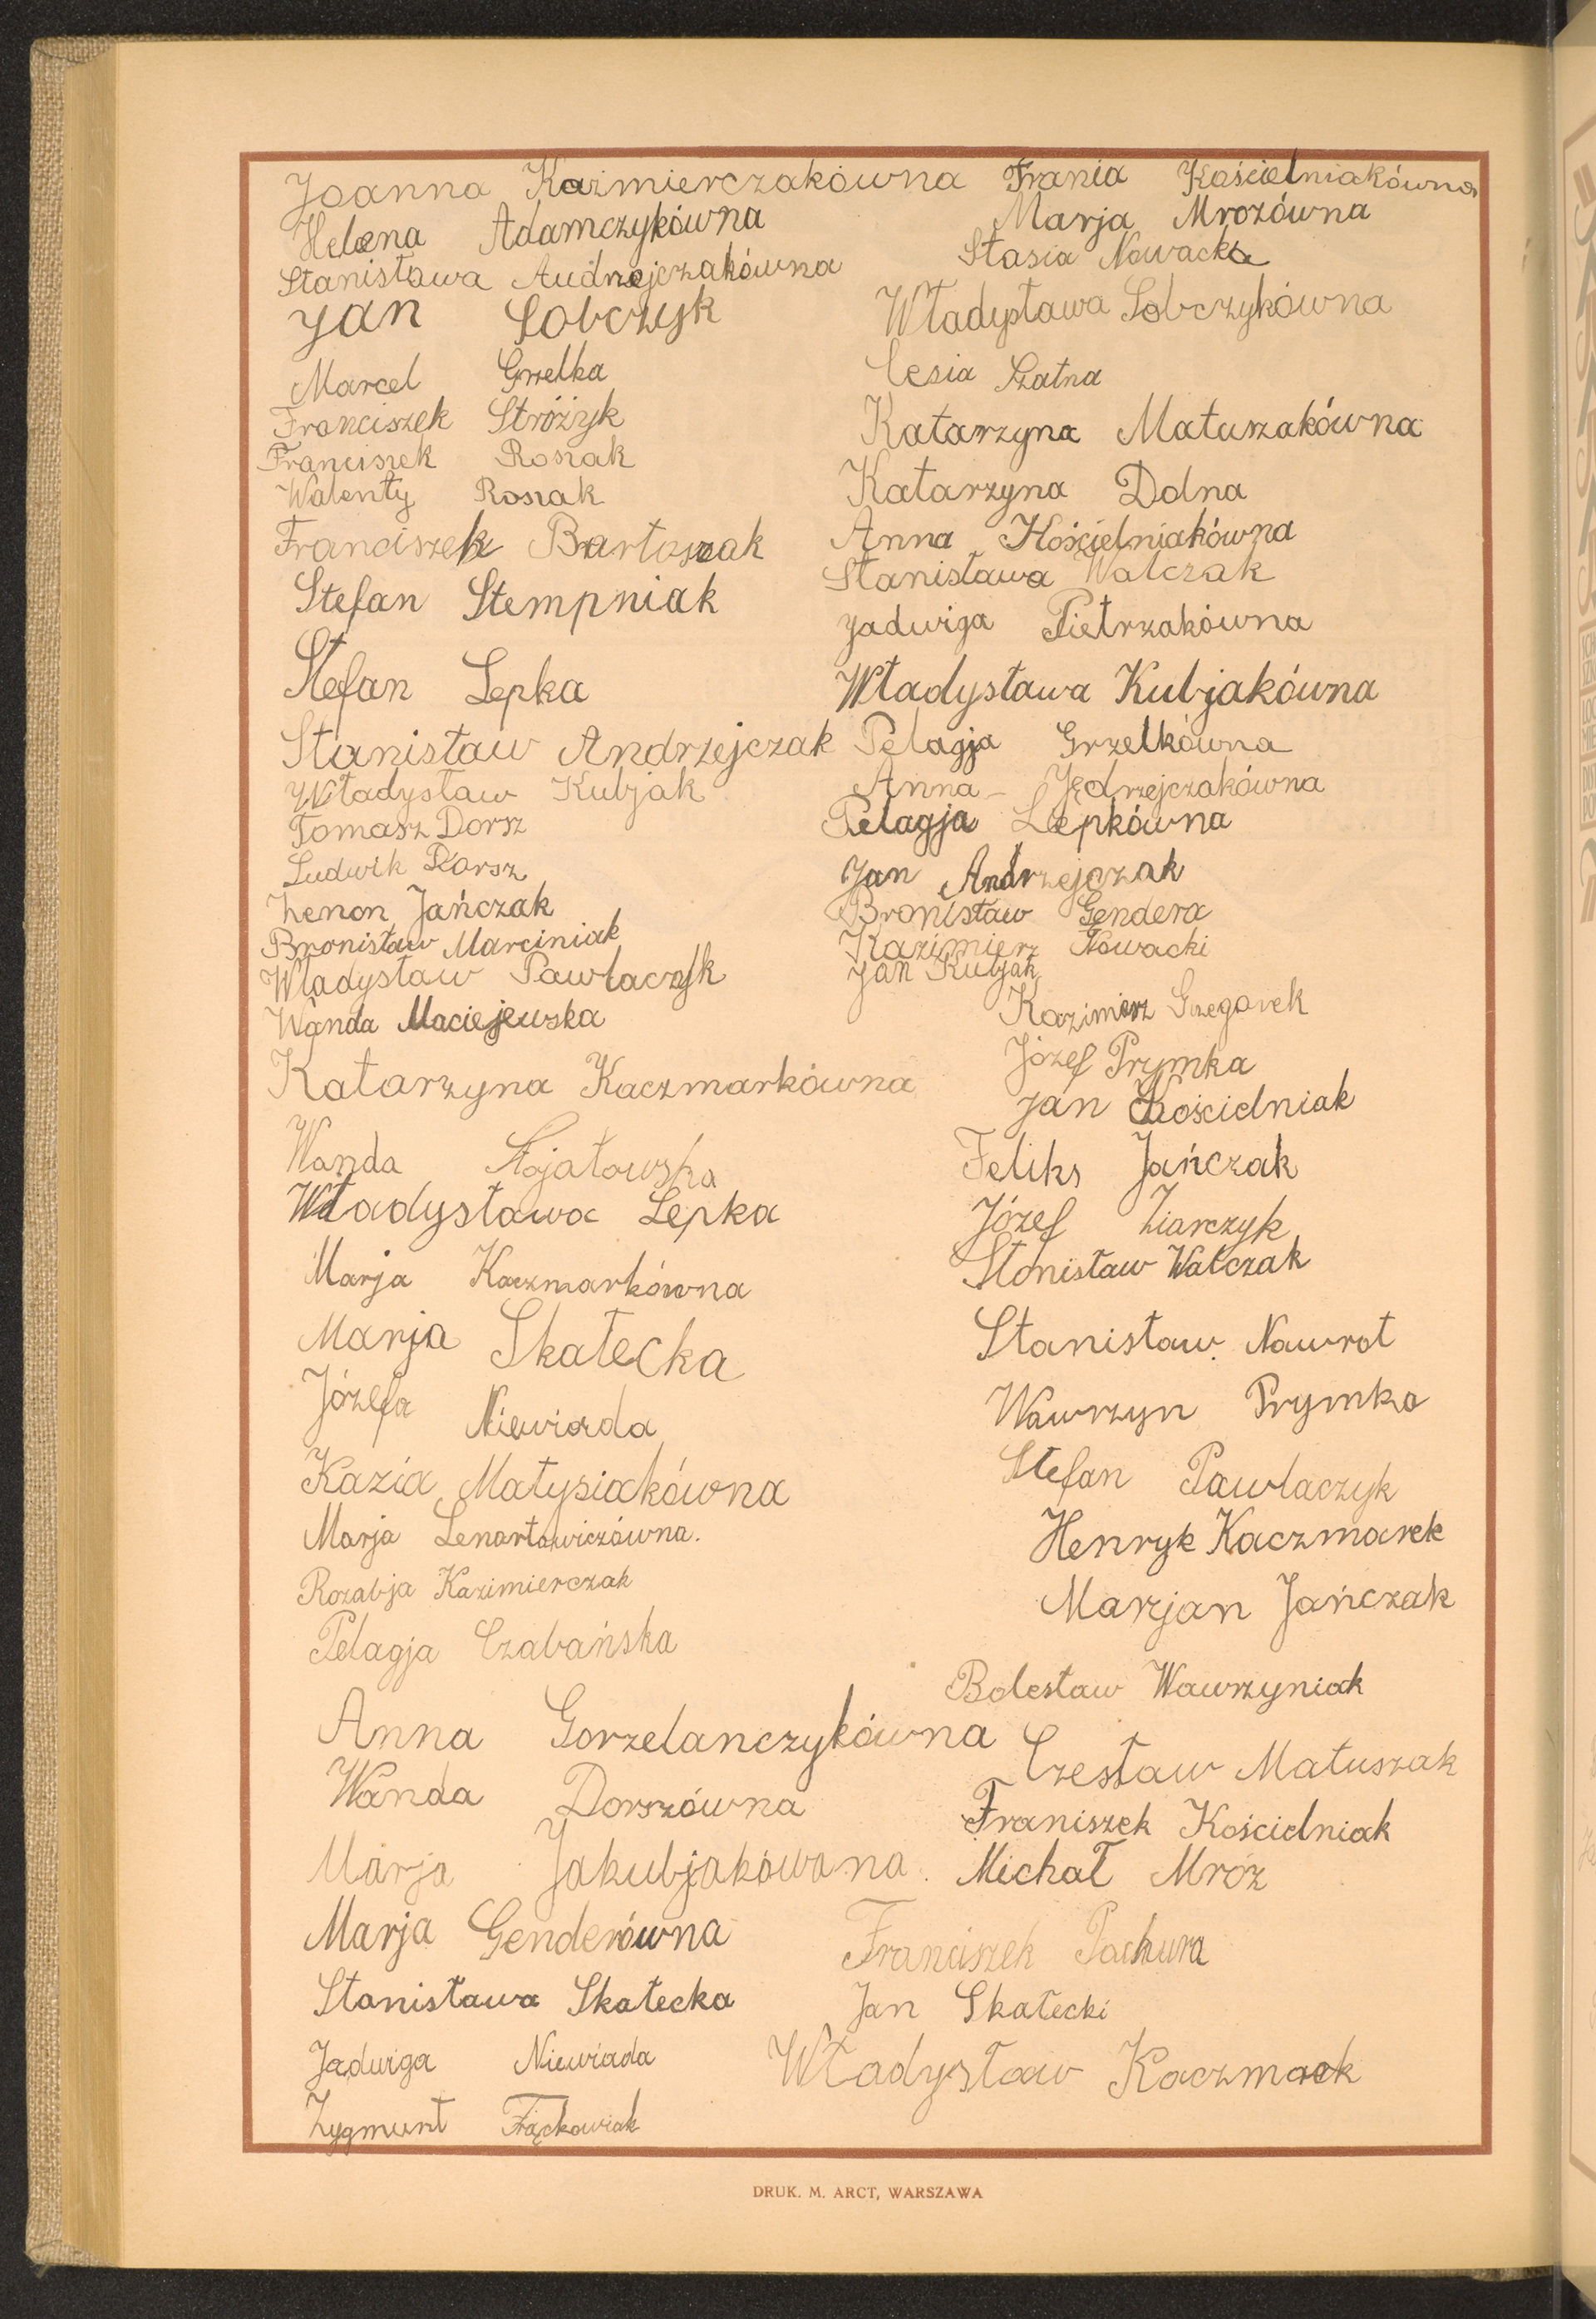 Joanna Kaźmierczakówna Frania Kościelniakówna
Helena Adamczykówna Marja Mrozówna
Stanisława Andrzejczakówna Stasia Nowacka
Jan Sobczyk Władysława Sobczykówna
Marcel Grzelka Cesia Szatna
Franciszek Stróżyk Katarzyna Matuszakówna
Franciszek Rosiak
Walenty Rosiak Katarzyna Dolna
Franciszek Bartoszak Anna Kościelniakówna
Stefan Stempniak Stanisława Walczak
Jadwiga Pietrzakówna
Stefan Lepka Władysława Kubjakówna
Stanisław Andrzejczak Pelagja Grzelkówna
Władysław Kubjak Anna Jędrzejczakówna
Tomasz Dorsz Pelagja Lepkówna
Ludwik Dorsz Jan Andrzejczak
Zenon Jańczak Bronisław Gendera
Bronisław Marciniak Kazimierz Nowacki
Władysław Pawlaczyk Jan Kubjak
Wanda Maciejewska Kazimierz Grzegorek
Józef Prymka
Katarzyna Kaczmarkówna Jan Kościelniak
Wanda Feliks Jańczak
Władysława Lepka Józef Ziarczyk
Marja Kaczmarkówna Stanisław Walczak
Marja Skałecka Stanisław Nawrot
Józefa Niewiada Wawrzyn Prymka
Kazia Matysiakówna Stefan Pawlaczyk
Marja Lenartowiczówna. Henryk Kaczmarek
Rozalja Kazimierczak Marjan Jańczak
Pelagja Czabańska
Bolesław Wawrzyniak
Anna Gorzelanczykówna Czesław Matuszak
Wanda Dorszówna Franiszek Kościelniak
Marja Jakubjakówna Michał Mróz
Marja Genderówna Franciszek Pachura
Stanisława Skałecka Jan Skałecki
Jadwiga Niewiada Władysław Kaczmarek
Zygmunt Frąckowiak
DRUK. M. ARCT, WARSZAWA